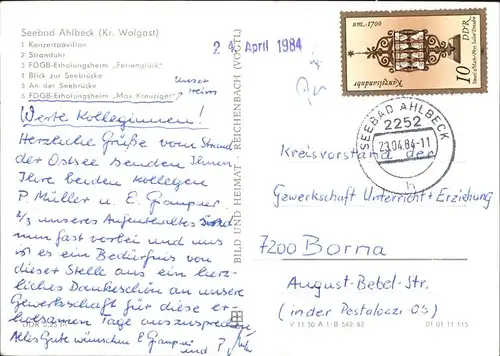 Seebad Ahlbeck (Kr. Wolgast)
1 Konzertpavillon
2 Stranduhr
3 FDGB-Erholungsheim „Ferienglück"
4 Blick zur Seebrücke
5 An der Seebrücke
6 FDGB-Erholungsheim „Max Kreuziger"
unser Heim
Werte Kolleginnen!
Herzliche Grüße vom Strand
der Ostsee senden Ihnen
Ihre beiden Kollegen
P. Müller u. E. Grampner
2/3 unseres Aufenthaltes sind
nun fast vorbei und uns
ist es ein Bedürfnis von
dieser Stelle aus ein herz-
liches Dankeschön an unsere
Gewerkschaft für diese er-
holsamen Tage auszusprechen
Alles Gute wünschen E. Grampner
und P.
DDR 0,25 M
BILD UND HEIMAT · REICHENBACH (VOGTL)
2 4. April 1984
um 1700
DDR
10
Kanzelsanduhr
SEEBAD AHLBECK
2252
23.04.84-11
h
Kreisvorstand der
Gewerkschaft Unterricht + Erziehung
7200 Borna
August-Bebel-Str.
(in der Pestalozzi OS)
V 11 50 A 1/B 542/82 01 01 11 115